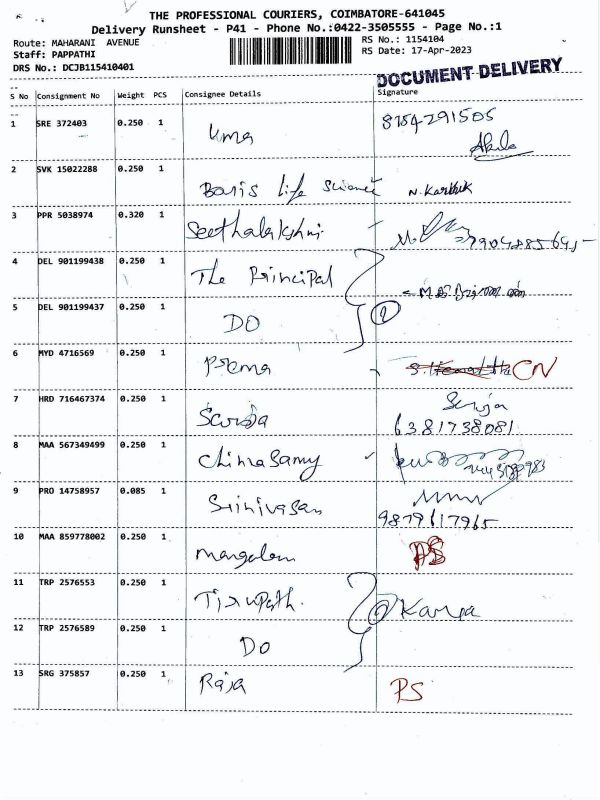 THE PROFESSIONAL COURIERS, COIMBATORE-641045
Delivery Runsheet - P41 - Phone No.:0422-3505555 - Page No.:1
Route: MAHARANI AVENUE
RS No.: 1154104
Staff: PAPPATHI
RS Date: 17-Apr-2023
DRS No.: DCJB115410401
DOCUMENT DELIVERY
S No Consignment No Weight PCS Consignee Details Signature
1 SRE 372403 0.250 1 Uma 8184291505
Akila
2 SVK 15022288 0.250 1 Baris life science N. Karthik
3 PPR 5038974 0.320 1 Seethalakshmi
4 DEL 901199438 0.250 1 The Principal
5 DEL 901199437 0.250 1 DO 2
6 MYD 4716569 0.250 1 Prema CN
7 HRD 716467374 0.250 1 Saroja Saroja
6381738081
8 MAA 567349499 0.250 1 Chinasamy
9 PRO 14758957 0.085 1 Srinivasan
9879617965
10 MAA 859778002 0.250 1 mangalam PS
11 TRP 2576553 0.250 1 Tirupath.
12 TRP 2576589 0.250 1 DO
13 SRG 375857 0.250 1 Raja PS